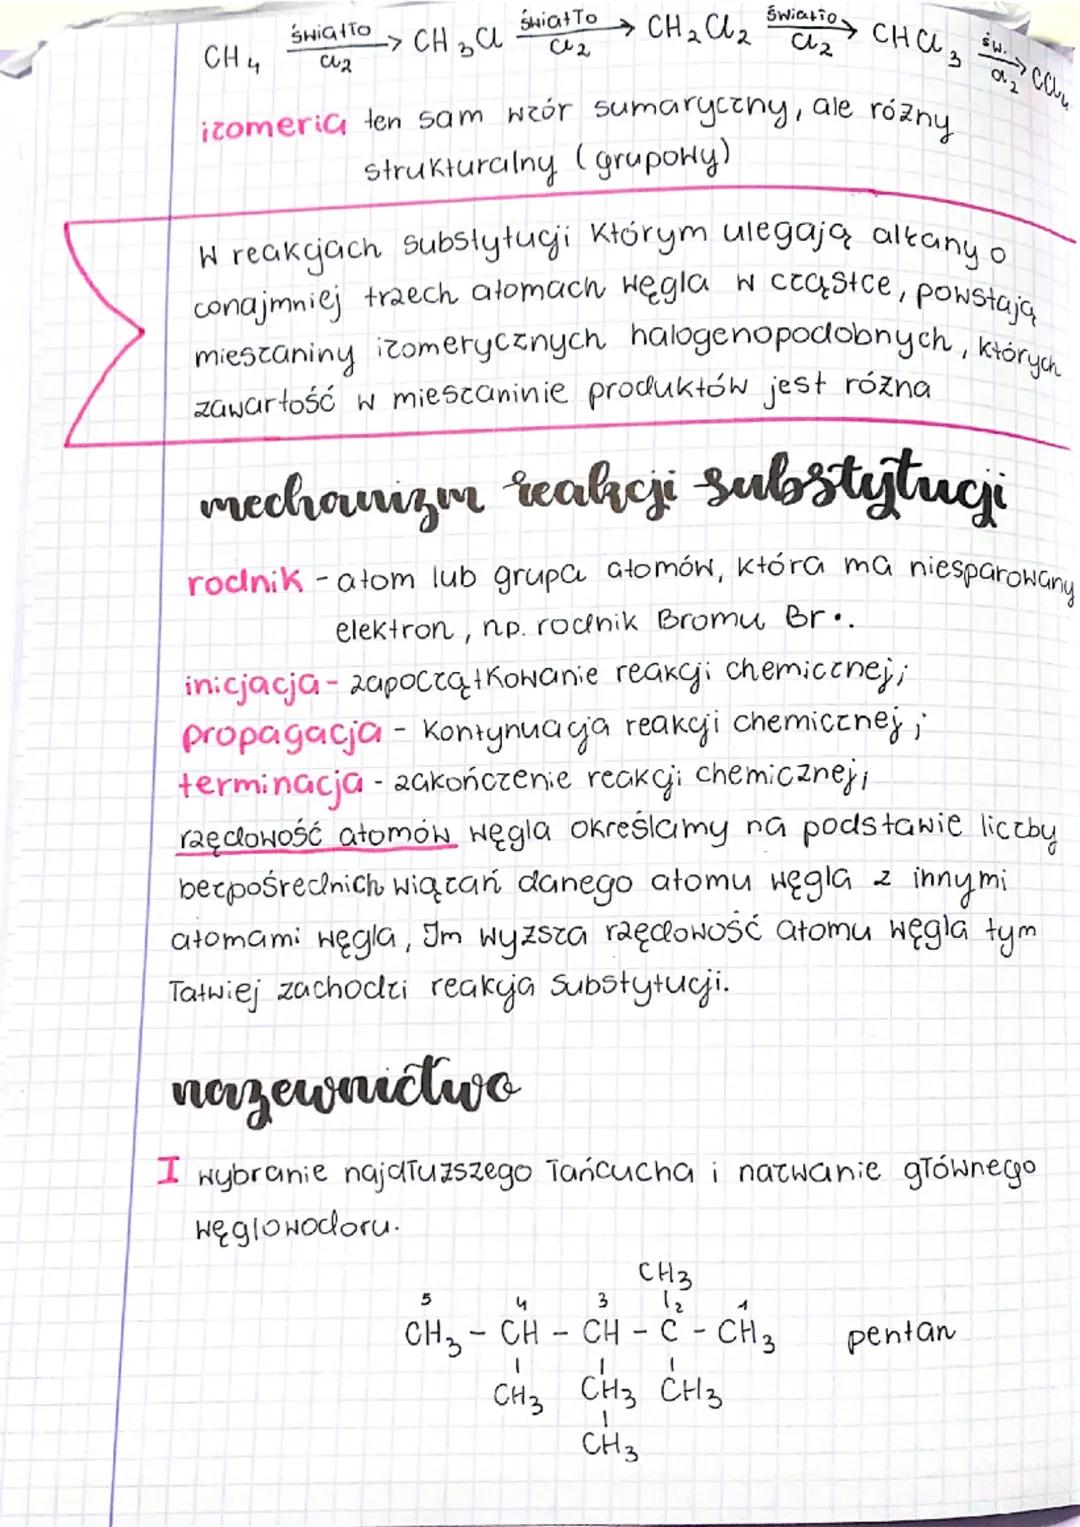 CH4 światło/Cl2 → CH3Cl światło/Cl2 → CH2Cl2 światło/Cl2 → CHCl3 św./Cl2 → CCl4
izomeria ten sam wzór sumaryczny, ale różny
strukturalny (grupowy)
W reakcjach substytucji którym ulegają alkany o
conajmniej trzech atomach węgla w cząstce, powstają
mieszaniny izomerycznych halogenopodobnych, których
zawartość w mieszaninie produktów jest różna
mechanizm reakcji substytucji
rodnik - atom lub grupa atomów, która ma niesparowany
elektron, np. rodnik Bromu Br•.
inicjacja - zapoczątkowanie reakcji chemicznej;
propagacja - kontynuacja reakcji chemicznej;
terminacja - zakończenie reakcji chemicznej;
rzędowość atomów węgla określamy na podstawie liczby
bezpośrednich wiązań danego atomu węgla z innymi
atomami węgla, Im wyższa rzędowość atomu węgla tym
łatwiej zachodzi reakcja substytucji.
nazewnictwo
I wybranie najdłuższego łańcucha i nazwanie głównego
węglowodoru.
CH3
5 4 3 2 1
CH3 - CH - CH - C - CH3 pentan
CH3 CH3 CH3
CH3